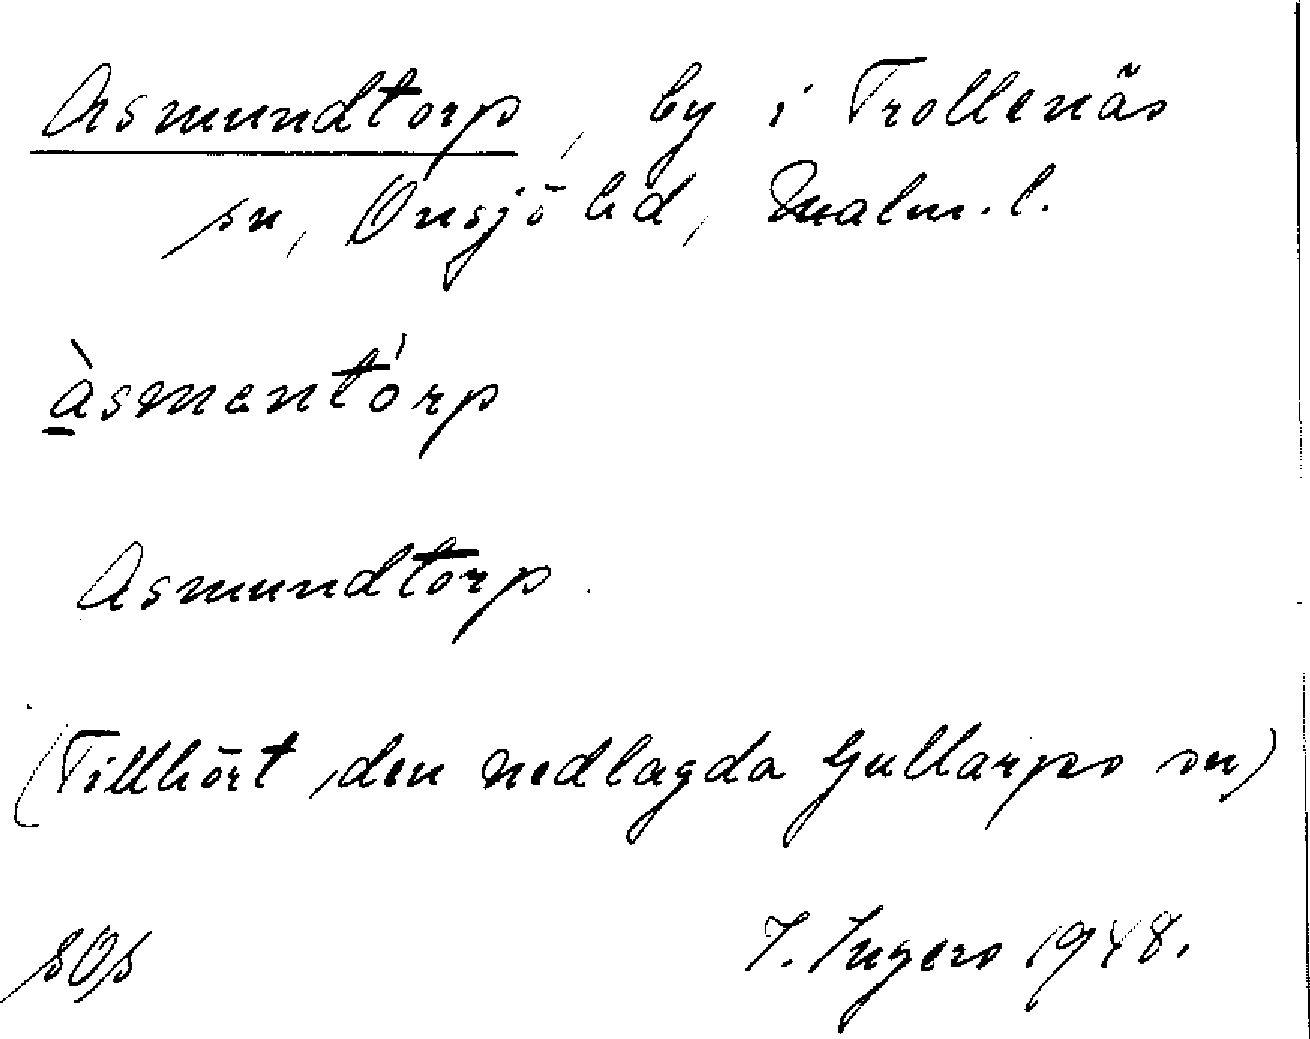 Asmundtorp, by i Trollenäs
sn, Onsjö hd, Malm. l.
a̱̍̀smentó̍rp
Asmundtorp.
(Tillhört den nedlagda Gullarps sn)
SOS
I. Ingers 1948.